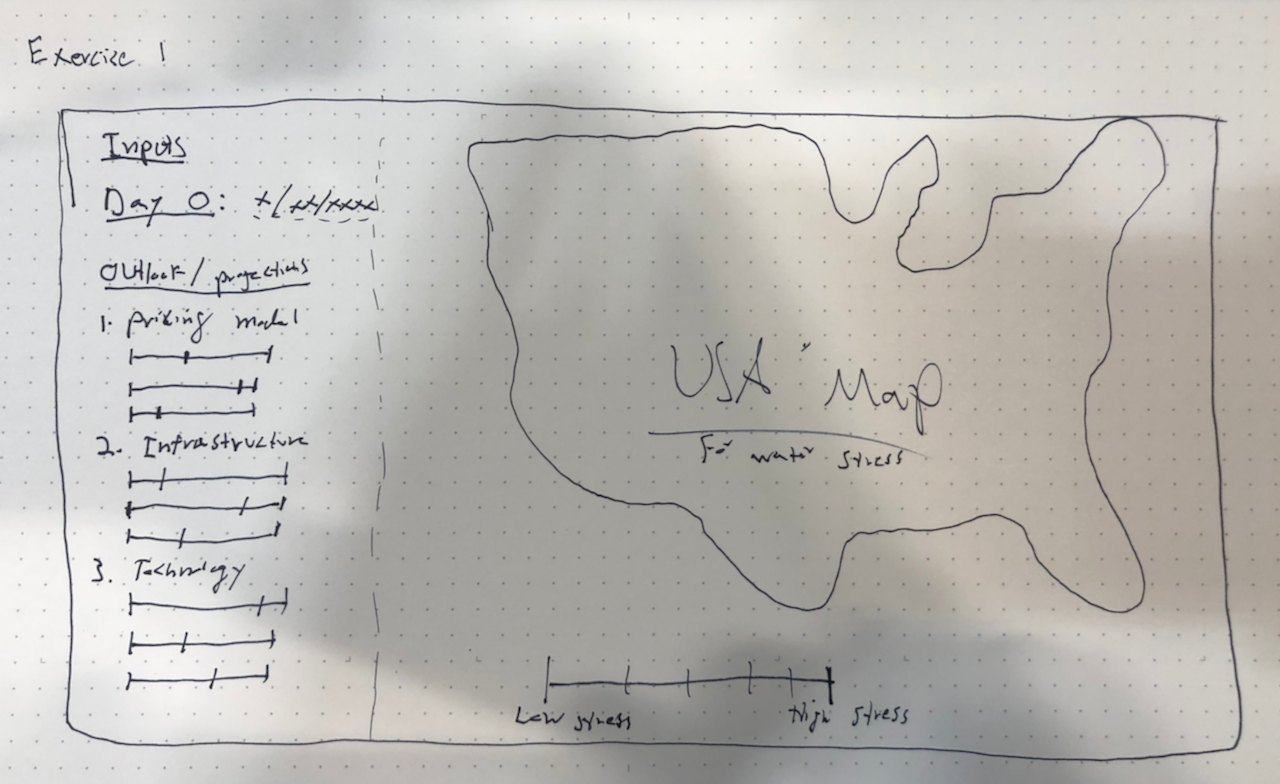 Exercise 1
Inputs
Day 0: x/xx/xxxx
Outlook/projections
1. Pricing model
2. Infrastructure
3. Technology
USA Map
For water stress
Low stress
High stress